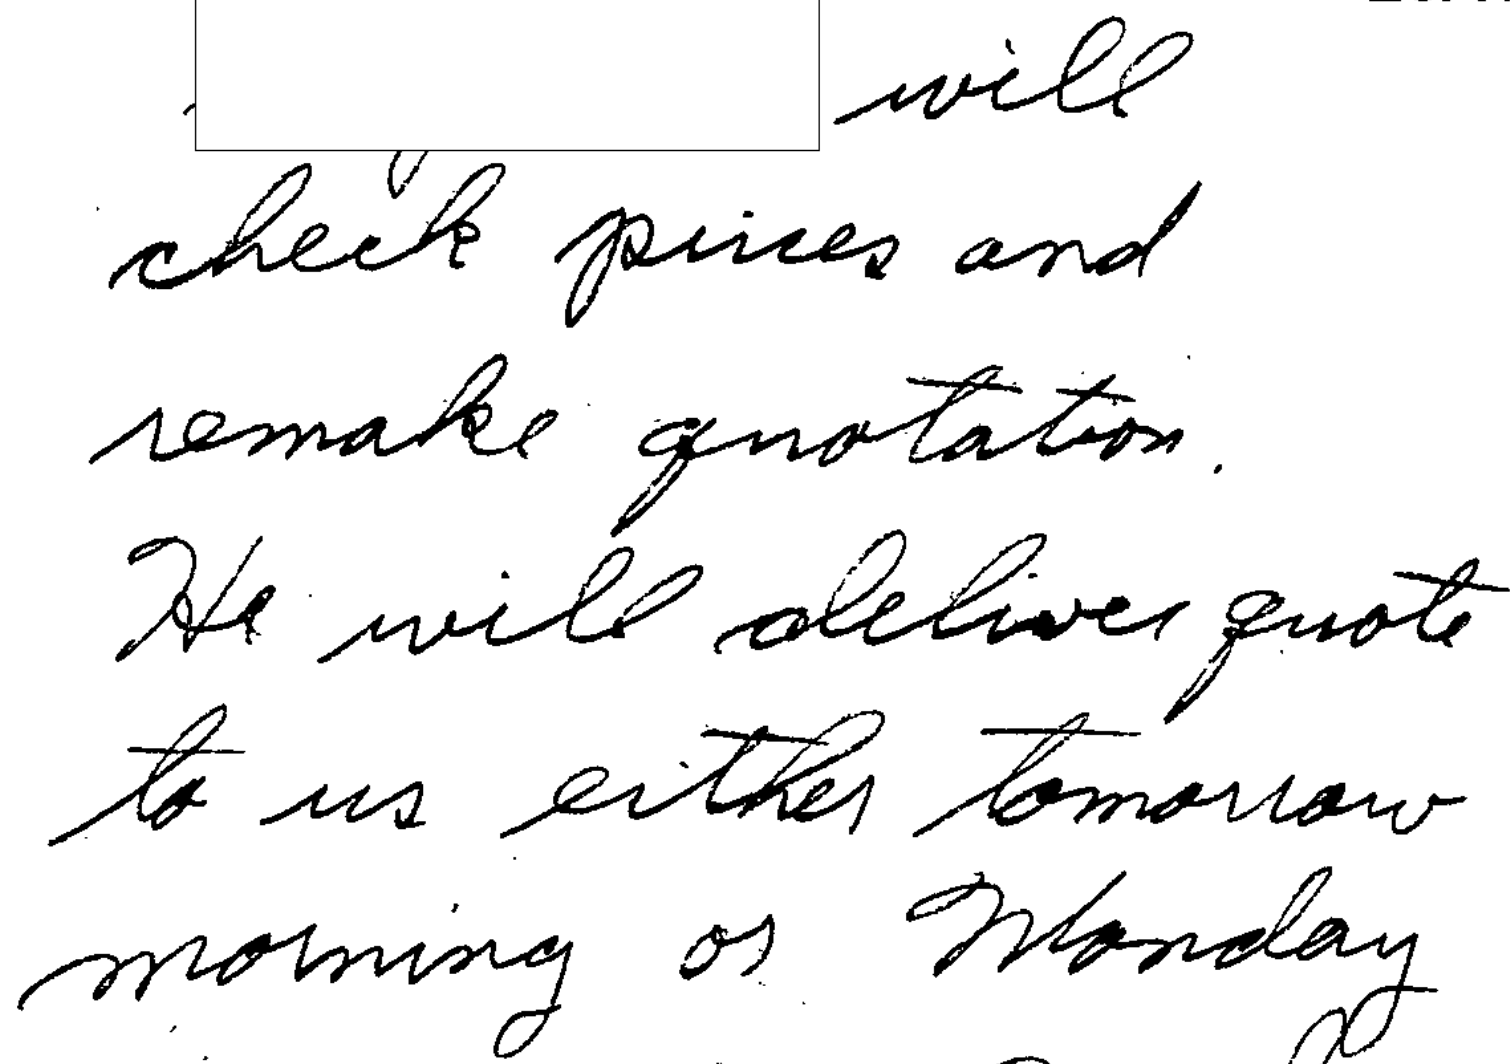 will
check prices and
remake quotation.
He will deliver quote
to us either tomorrow
morning or Monday